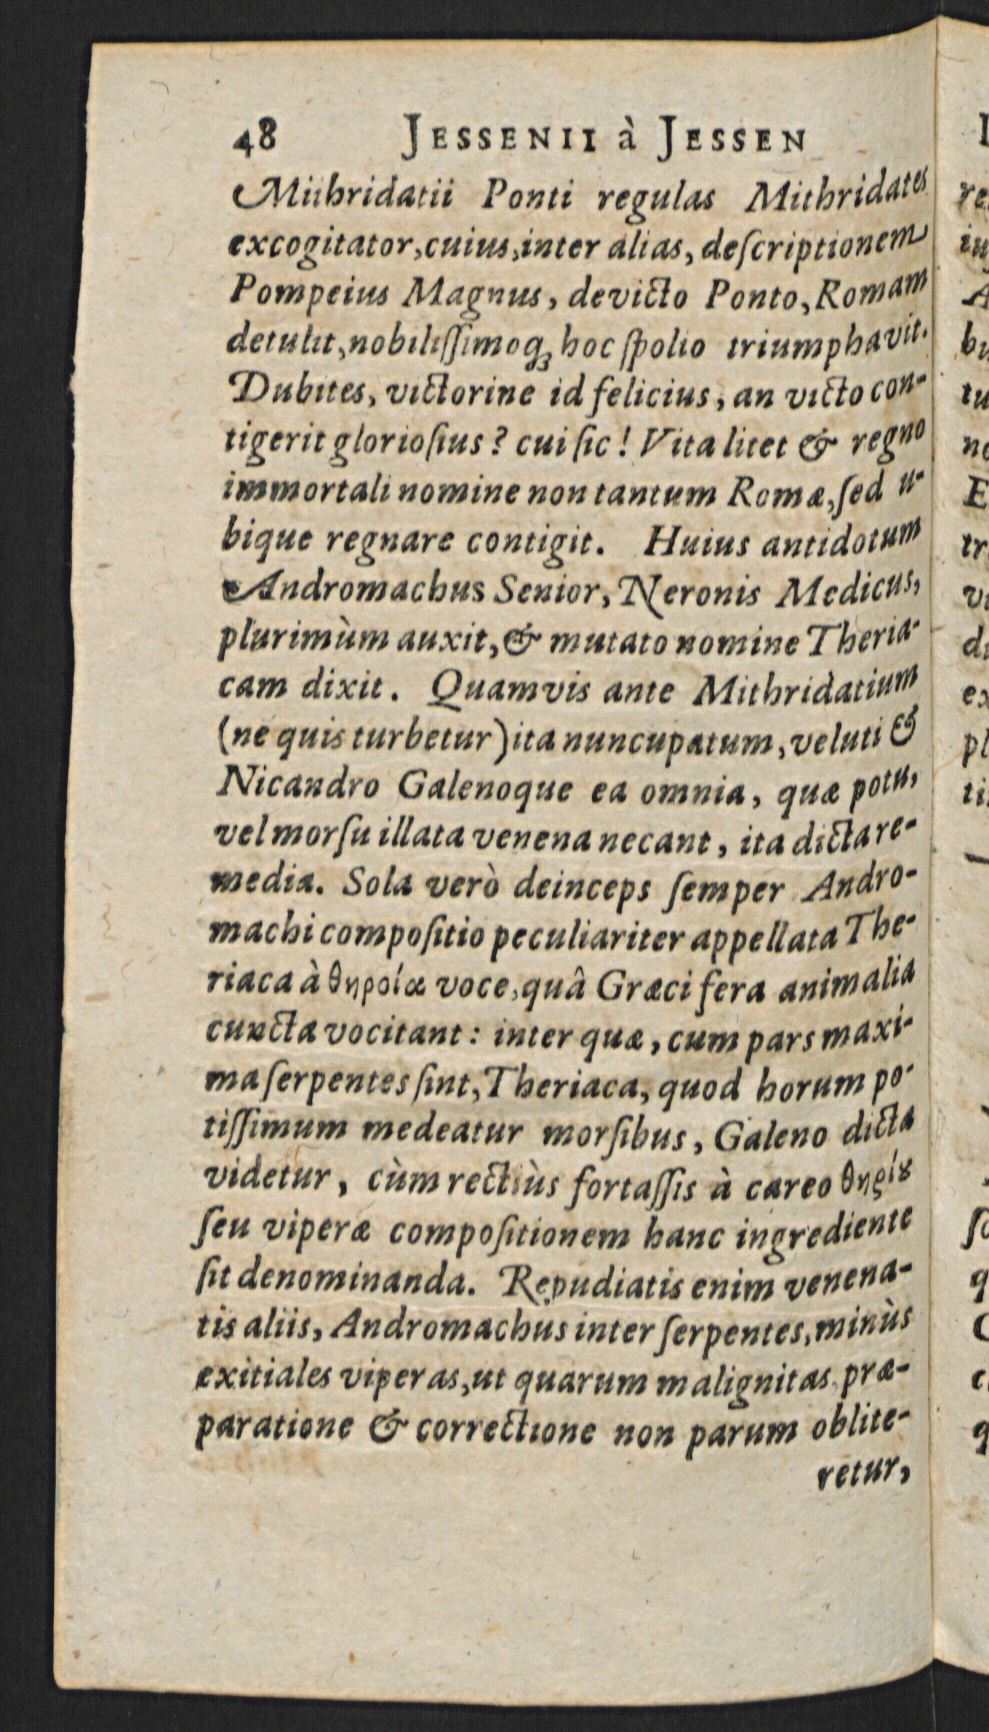 48 JESSENII à JESSEN
Mithridatii Ponti regulas Mithridates
excogitator, cuius, inter alias, deſcriptionem
Pompeius Magnus, devicto Ponto, Romam
detulit, nobiliſſimoq; hoc ſpolio triumphavit.
Dubites, victorine id felicius, an victo con-
tigerit glorioſius? cui ſic! Vita litet & regno
immortali nomine non tantum Romæ, ſed u-
bique regnare contigit. Huius antidotum
Andromachus Senior, Neronis Medicus,
plurimùm auxit, & mutato nomine Theria-
cam dixit. Quamvis ante Mithridatium
(ne quis turbetur) ita nuncupatum, veluti &
Nicandro Galenoque ea omnia, quæ potu,
vel morſu illata venena necant, ita dicta re-
media. Sola verò deinceps ſemper Andro-
machi compoſitio peculiariter appellata The-
riaca à θηροία voce, quâ Græci fera animalia
cuncta vocitant: inter quæ, cum pars maxi-
ma ſerpentes ſint, Theriaca, quod horum po-
tiſſimum medeatur morſibus, Galeno dicta
videtur, cùm rectiùs fortaſſis à careo θηρίȣ
ſeu viperæ compoſitionem hanc ingrediente
ſit denominanda. Repudiatis enim venena-
tis aliis, Andromachus inter ſerpentes, minùs
exitiales viperas, ut quarum malignitas præ-
paratione & correctione non parum oblite-
retur,